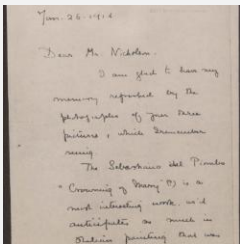 Jan. 26 - 1916
Dear Mr. Nicholson.
I am glad to have my
memory refreshed by the
photographs of your three
pictures, which I remember
seeing
The Sebastiano del Piombo
"Crowning of (?) is a
most interesting work. It
anticipates so much in
painting that was